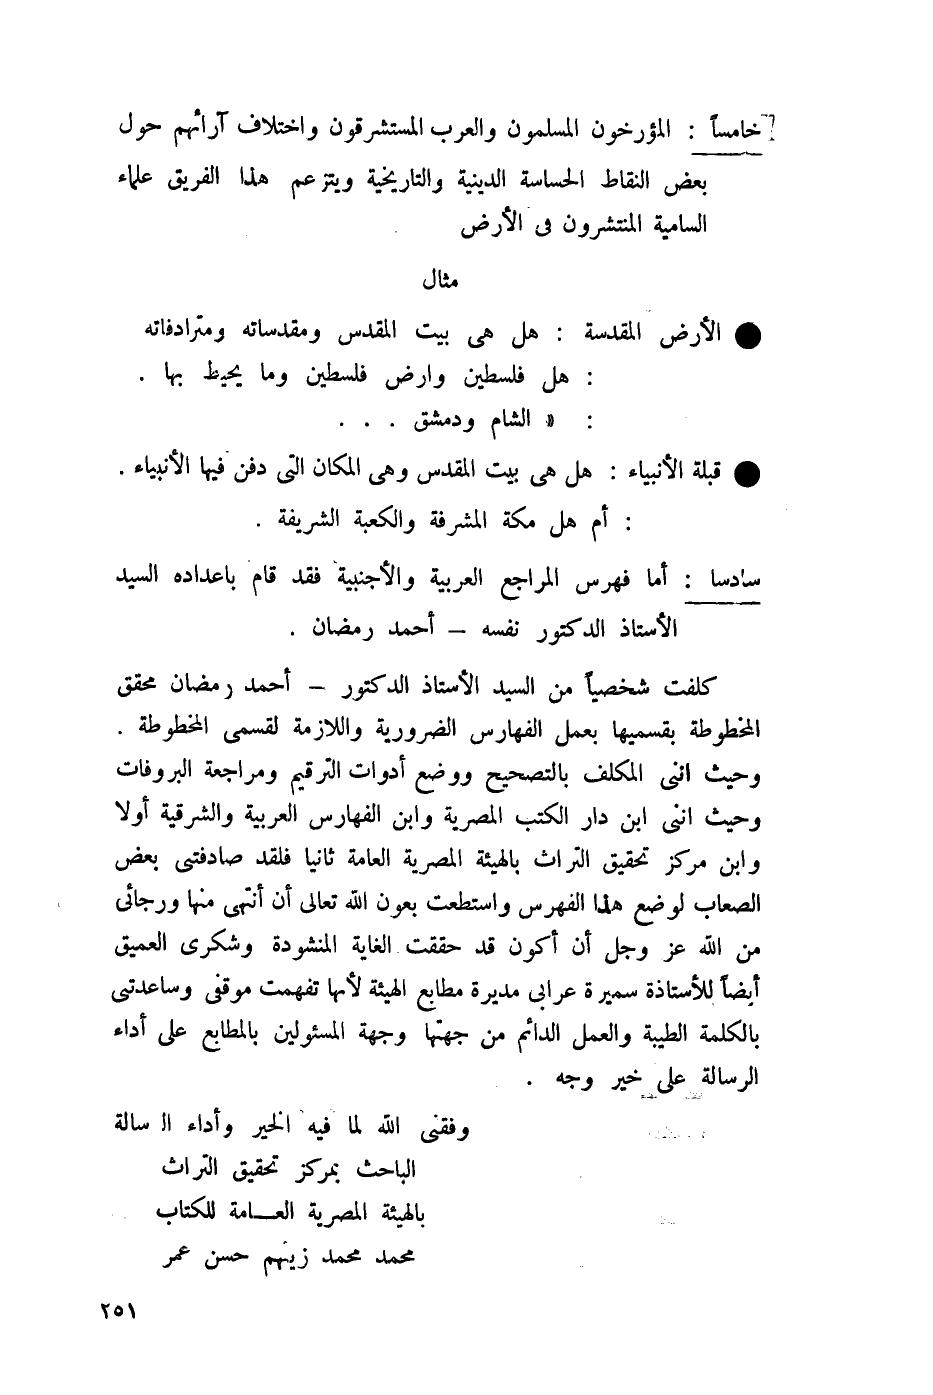 خامساً : المؤرخون المسلمون والعرب المستشرقون واختلاف آرائهم حول
بعض النقاط الحساسة الدينية والتاريخية ويتزعم هذا الفريق علماء
السامية المنتشرون فى الأرض
مثال
● الأرض المقدسة : هل هى بيت المقدس ومقدساته ومترادفاته
: هل فلسطين وارض فلسطين وما يحيط بها .
: « الشام ودمشق . . .
● قبلة الأنبياء : هل هى بيت المقدس وهى المكان التى دفن فيها الأنبياء .
: أم هل مكة المشرفة والكعبة الشريفة .
سادسا : أما فهرس المراجع العربية والأجنبية فقد قام باعداده السيد
الأستاذ الدكتور نفسه – أحمد رمضان .
كلفت شخصياً من السيد الأستاذ الدكتور – أحمد رمضان محقق
المخطوطة بقسميها بعمل الفهارس الضرورية واللازمة لقسمى المخطوطة .
وحيث اننى المكلف بالتصحيح ووضع أدوات الترقيم ومراجعة البروفات
وحيث اننى ابن دار الكتب المصرية وابن الفهارس العربية والشرقية أولا
وابن مركز تحقيق التراث بالهيئة المصرية العامة ثانيا فلقد صادفتنى بعض
الصعاب لوضع هذا الفهرس واستطعت بعون الله تعالى أن أنتهى منها ورجائى
من الله عز وجل أن أكون قد حققت الغاية المنشودة وشكرى العميق
أيضاً للأستاذة سميرة عرابى مديرة مطابع الهيئة لأنها تفهمت موقفى وساعدتنى
بالكلمة الطيبة والعمل الدائم من جهتها وجهة المسئولين بالمطابع على أداء
الرسالة على خير وجه .
وفقنى الله لما فيه الخير وأداء الرسالة
الباحث بمركز تحقيق التراث
بالهيئة المصرية العــامة للكتاب
محمد محمد زينهم حسن عمر
٢٥١